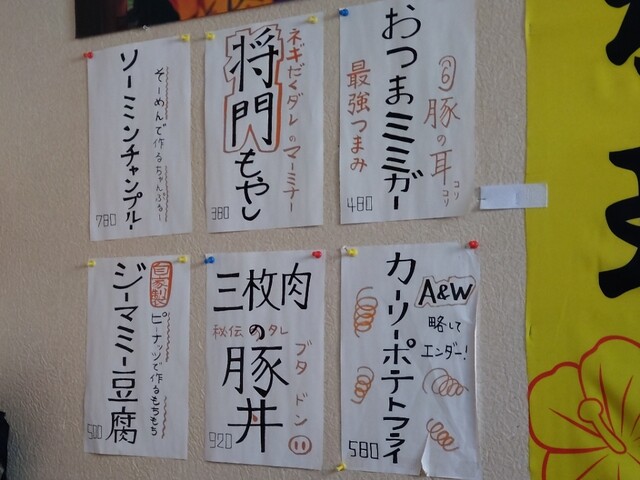 おつまミミガー
⑥豚の耳
コリコリ
最強つまみ
480
ネギだくダレのマーミナー
将門もやし
380
そーめんで作るちゃんぷるー
ソーミンチャンプルー
780
A&W
略して
エンダー!
カーリーポテトフライ
580
三枚肉
の
豚丼
秘伝のタレ
ブタドン
920
自家製
ピーナッツで作るもちもち
ジーマミー豆腐
500